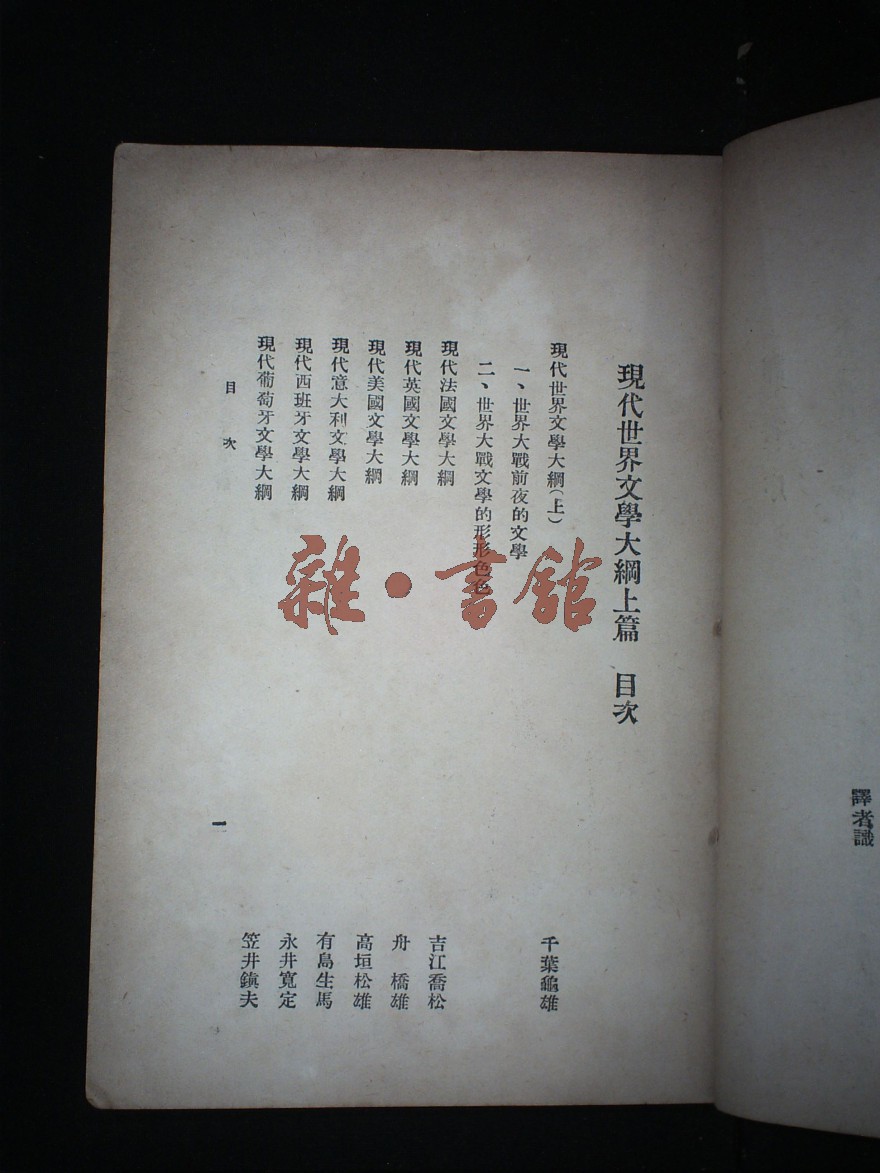 譯者識
現代世界文學大綱上篇　目次
現代世界文學大綱(上)　千葉龜雄
一、世界大戰前夜的文學
二、世界大戰文學的形形色色
現代法國文學大綱　吉江喬松
現代英國文學大綱　舟橋雄
現代美國文學大綱　高垣松雄
現代意大利文學大綱　有島生馬
現代西班牙文學大綱　永井寬定
現代葡萄牙文學大綱　笠井鎭夫
目次
一
雜·書館